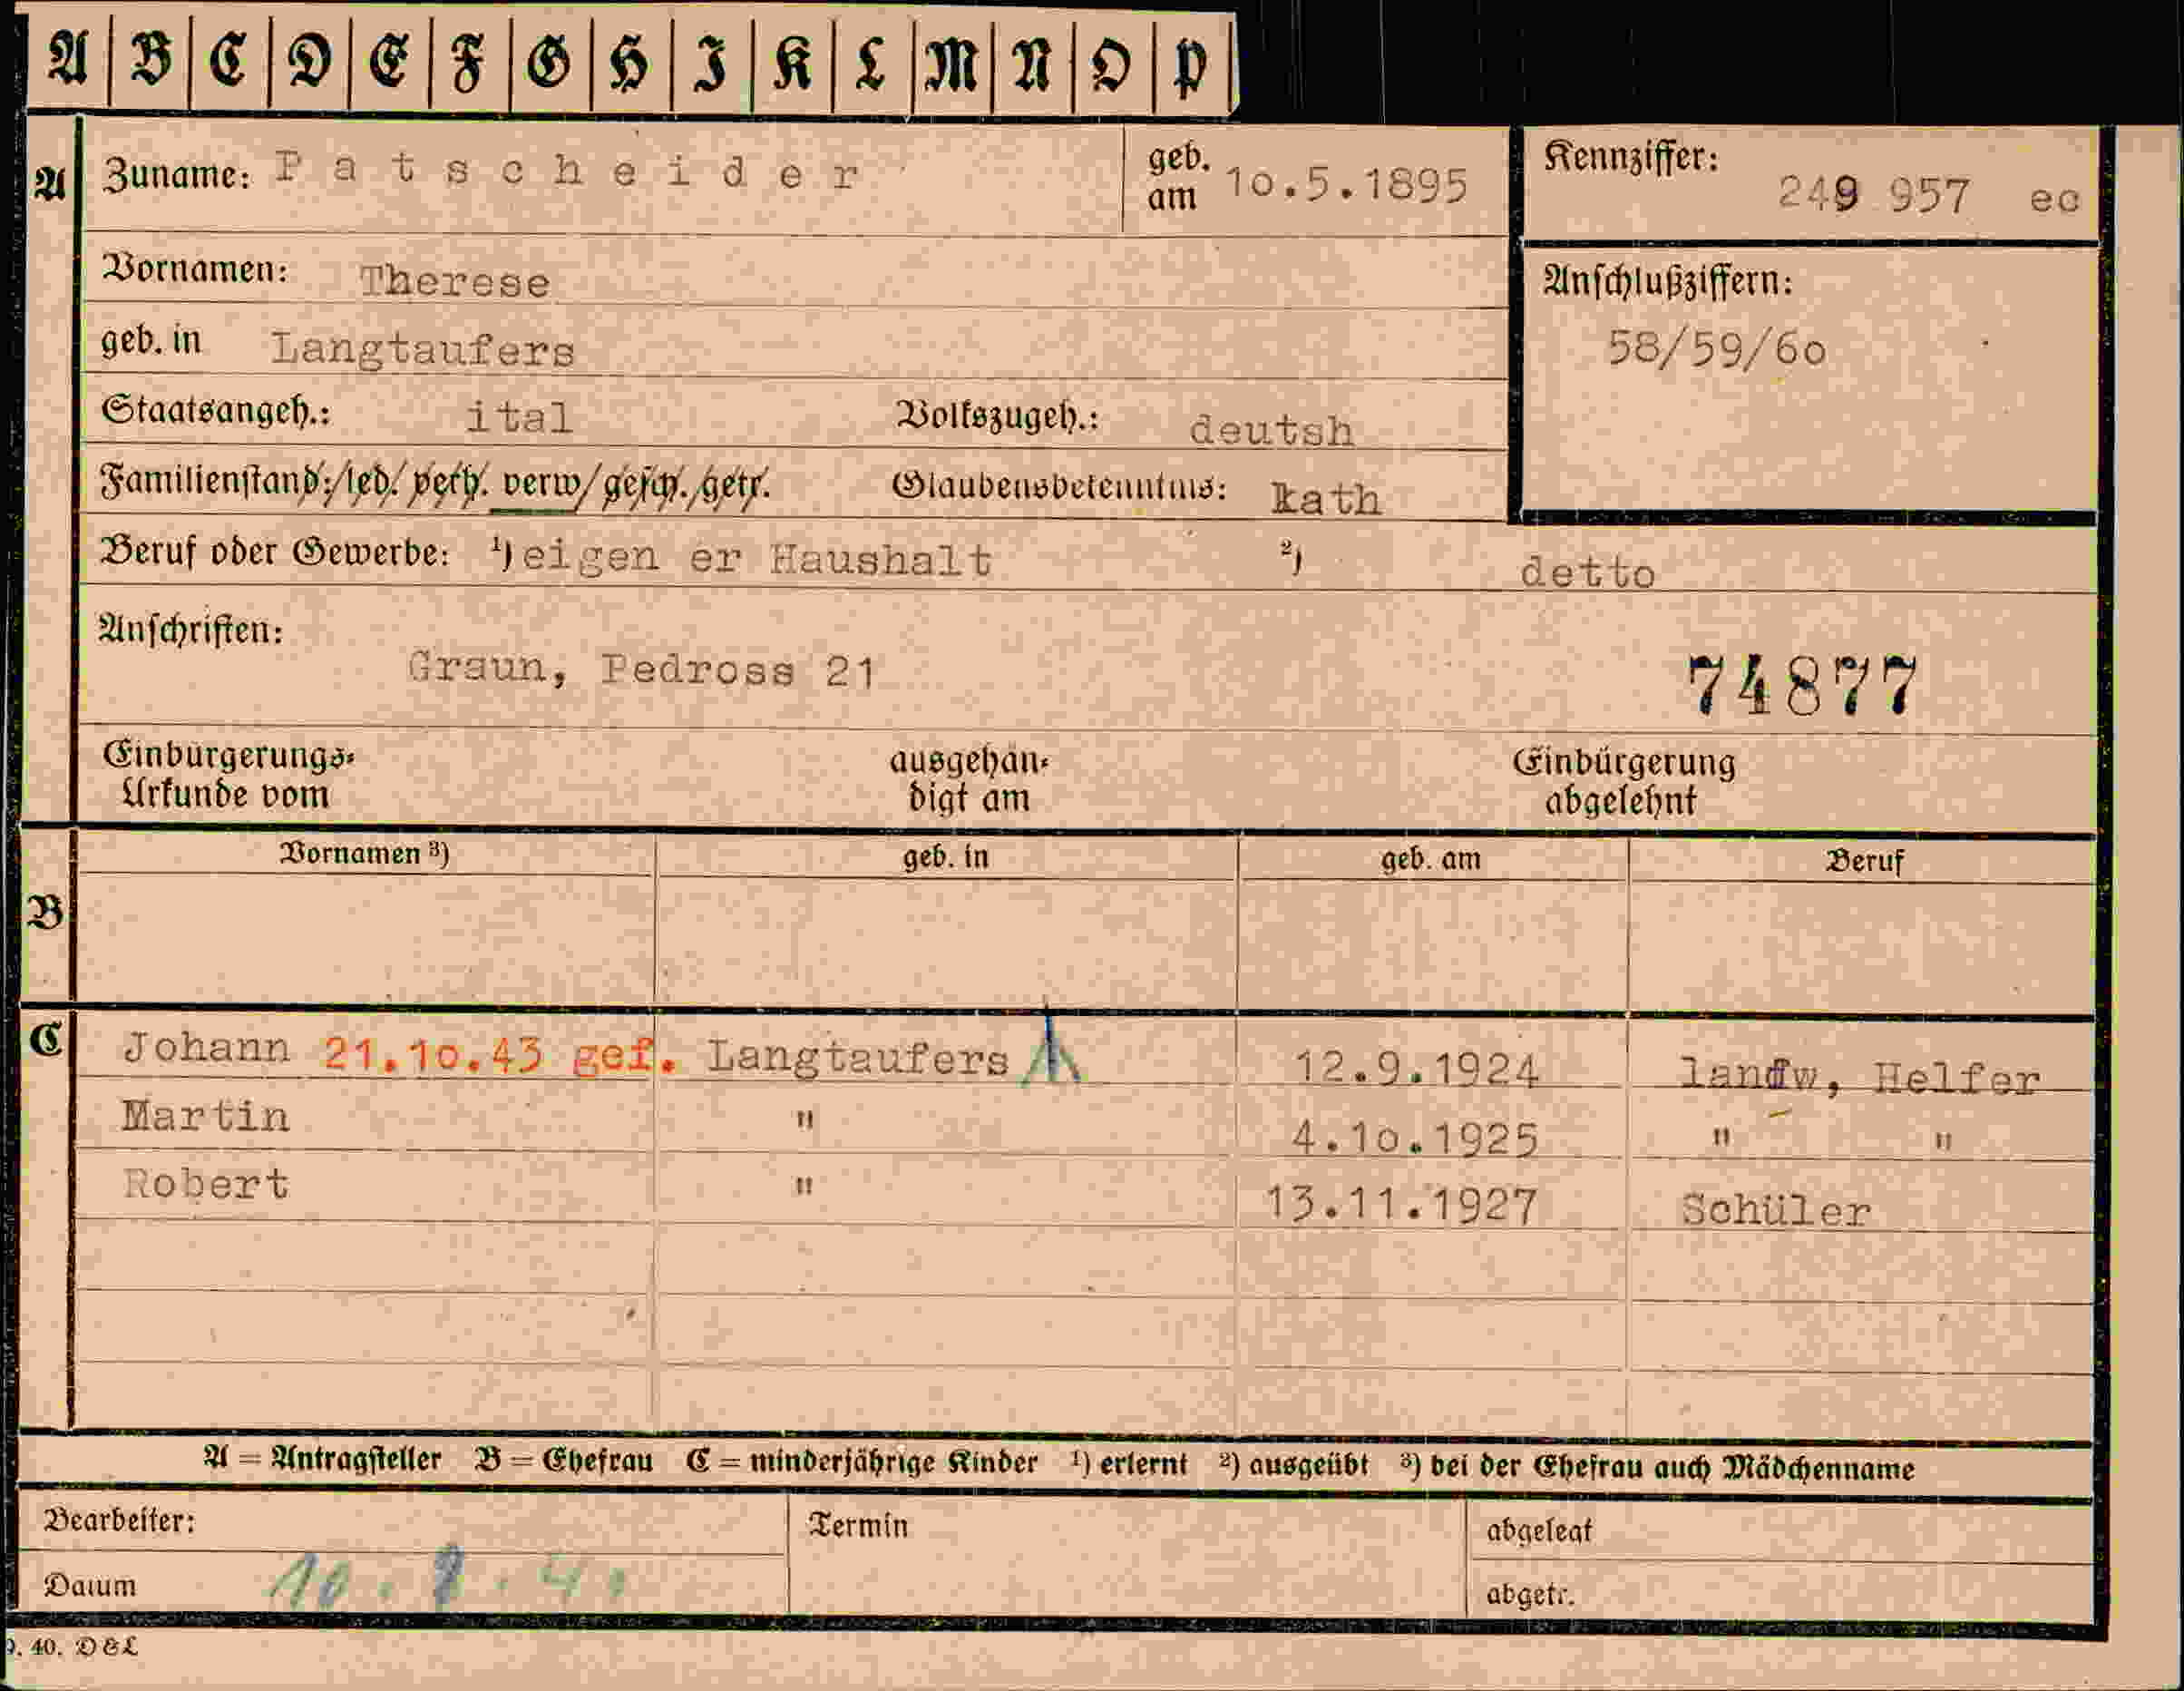 A B C D E F G H I K L M N O P
A Zuname: Patscheider geb. am 10.5.1895 Kennziffer: 249 957 eo
Vornamen: Therese Anschlußziffern:
geb. in Langtaufers 58/59/60
Staatsangeh.: ital Volkszugeh.: deutsh
Familienstand:/led. verh. verw/gesch./getr. Glaubensbekenntnis: kath
Beruf oder Gewerbe: ¹) eigen er Haushalt ²) detto
Anschriften:
Graun, Pedross 21 74877
Einbürgerungs- ausgehän- Einbürgerung
Urkunde vom digt am abgelehnt
Vornamen ³) geb. in geb. am Beruf
B
C Johann 21.10.43 gef. Langtaufers 12.9.1924 landw, Helfer
Martin " 4.10.1925 " "
Robert " 13.11.1927 Schüler
A = Antragsteller B = Ehefrau C = minderjährige Kinder ¹) erlernt ²) ausgeübt ³) bei der Ehefrau auch Mädchenname
Bearbeiter: Termin abgelegt
Datum abgetr.
40. D&L